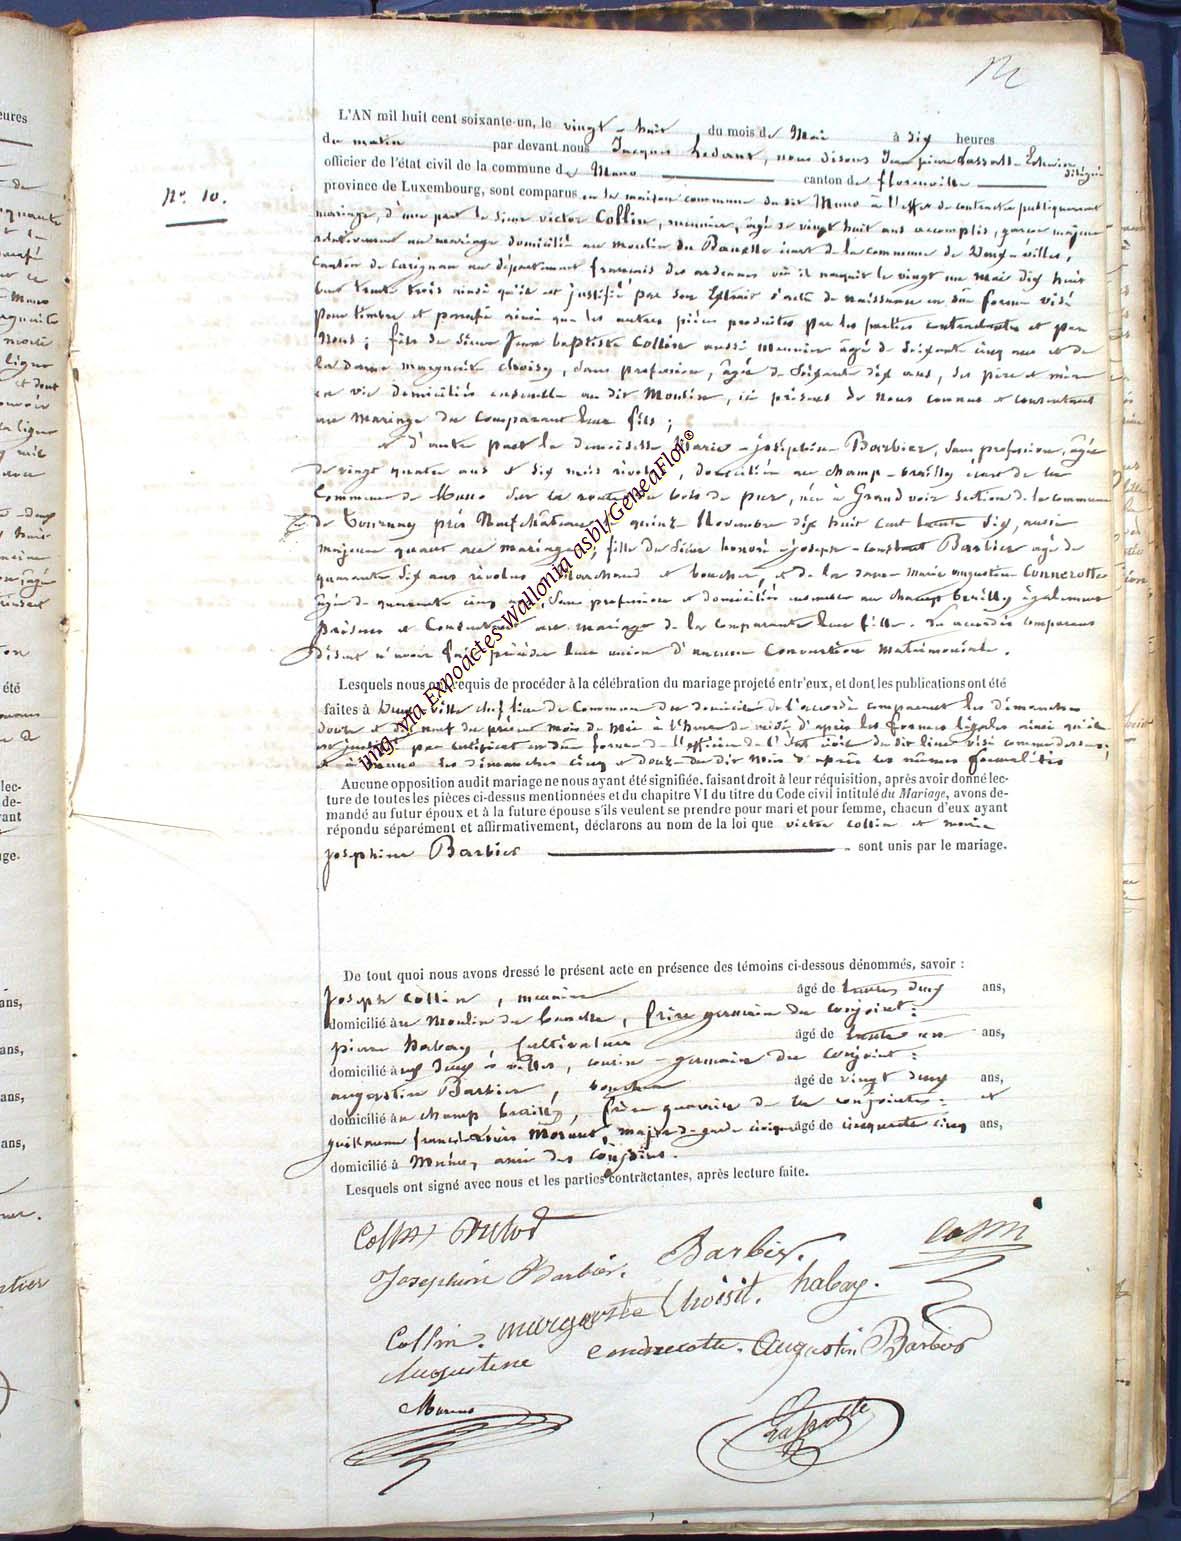 L'AN mil huit cent soixante-un, le vingt-huit du mois de Mai à dix heures
du matin par devant nous Jacques nous disons Jean pierre
officier de l'état civil de la commune de Muno canton de florenville délégué
N° 10.
province de Luxembourg, sont comparus en la maison commune du dit Muno à l'effet de contracter publiquement
mariage, d'une part le sieur victor Collin, meunier, âgé de vingt huit ans accomplis, garçon majeur
relativement au mariage domicilié au moulin du Banelle écart de la commune de Deux-villes,
canton de Carignan au département français des ardennes où il naquit le vingt un mai dix huit
cent trente trois ainsi qu'il est justifié par son Extrait d'acte de naissance en due forme visé
pour timbre et paraphé ainsi que les autres pièces produites par les parties contractantes et par
Nous; fils de sieur Jean baptiste Collin aussi Meunier âgé de soixante cinq ans et de
la dame marguerite choisy, sans profession, âgée de soixante dix ans, ses père et mère
en vie domiciliés ensemble au dit Moulin, ici présens de nous connus et consentant
au mariage du comparant leur fils;
et d'autre part la demoiselle Marie-joséphine Barbier, sans profession, âgée
de vingt quatre ans et six mois révolus, domiciliée au champ-brailly écart de la
Commune de Muno sur la route du bois de pur, née à Grandvoir section de la commune
de Tournay près Neufchâteau le quinze Novembre dix huit cent trente six, aussi
majeure quant au mariage, fille du sieur honoré-joseph-constant Barbier âgé de
quarante six ans révolus Marchand et boucher, et de la dame marie augustine Connerotte
âgée de quarante cinq ans, sans profession et domiciliés ensemble au champ brailly également
présens et Consentant au mariage de la comparante leur fille. Les accordés comparans
disent n'avoir fait précéder leur union d'aucune Convention matrimoniale.
Lesquels nous ont requis de procéder à la célébration du mariage projeté entr'eux, et dont les publications ont été
faites à Deux-ville chef lieu de Commune du domicile de l'accordé comparant les dimanches
douze et dix neuf du présent mois de Mai à l'heure de midi d'après les formes légales ainsi qu'il
est justifié par certificat en due forme de l'officier de l'état civil du dit lieu visé comme dessus;
et à Muno les dimanches cinq et douze du dit Mois d'après les mêmes formalités
Aucune opposition audit mariage ne nous ayant été signifiée. faisant droit à leur réquisition, après avoir donné lec-
ture de toutes les pièces ci-dessus mentionnées et du chapitre VI du titre du Code civil intitulé du Mariage, avons de-
mandé au futur époux et à la future épouse s'ils veulent se prendre pour mari et pour femme, chacun d'eux ayant
répondu séparément et affirmativement, déclarons au nom de la loi que victor Collin et marie
josephine Barbier sont unis par le mariage.
De tout quoi nous avons dressé le présent acte en présence des témoins ci-dessous dénommés, savoir :
Joseph Collin, meunier âgé de trente deux ans,
domicilié au Moulin du banelle, frère germain du conjoint:
pierre habay, cultivateur âgé de trente un ans,
domicilié aux Deux villes, cousin-germain du conjoint:
augustin Barbier, boucher âgé de vingt deux ans,
domicilié au champ brailly, frère germain de la conjointe: et
guillaume françois Louis major de garde civique âgé de cinquante cinq ans,
domicilié à Muno, ami des conjoints.
Lesquels ont signé avec nous et les parties contractantes, après lecture faite.
Collin
Josephine Barbier. Barbier. Collin
Collin. marguerite Choisit. habay.
Augustine Connerotte. Augustin Barbier
img. via Expoactes Wallonia asbl/GeneaFlor©